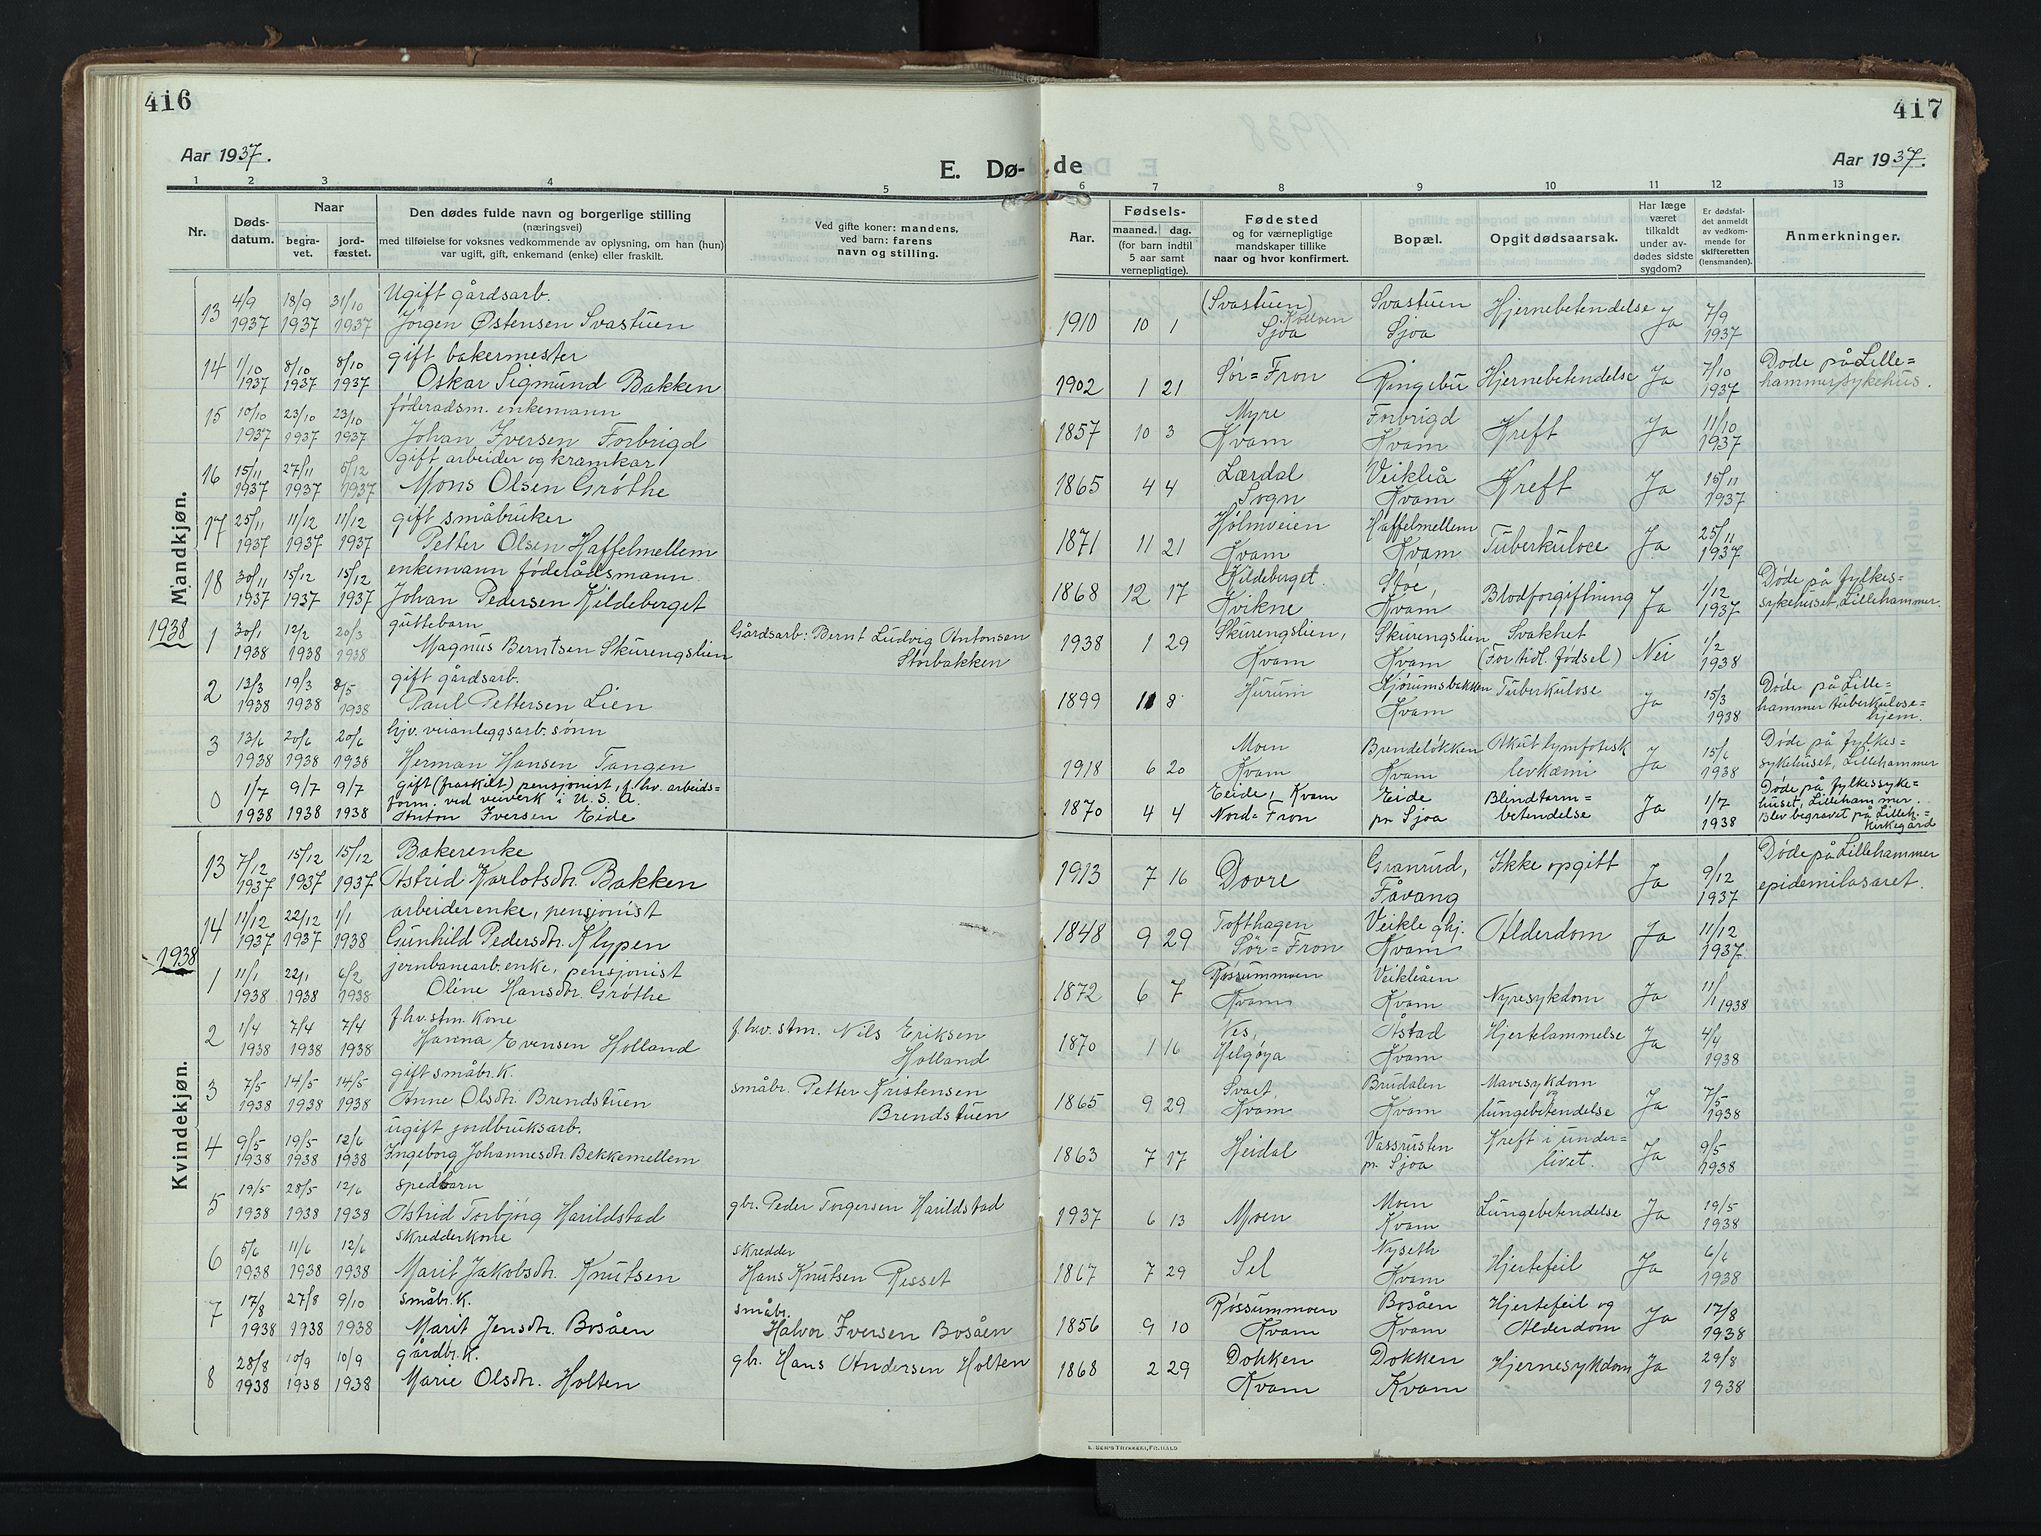 416
Aar 1937.
E. Dø-
1 2 3 4 5
Nr.
Døds-
datum.
Naar
begra-
vet.
jord-
fæstet.
Den dødes fulde navn og borgerlige stilling
(næringsvei)
med tilføielse for voksnes vedkommende av oplysning, om han (hun)
var ugift, gift, enkemand (enke) eller fraskilt.
Ved gifte koner: mandens,
ved barn: farens
navn og stilling.
Mandkjøn.
13 4/9 18/9 31/10 Ugift gårdsarb.
1937 1937 1937 Jørgen Østensen Svastuen
14 1/10 8/10 8/10 gift bakermester
1937 1937 1937 Oskar Sigmund Bakken
15 10/10 23/10 23/10 føderadsm. enkemann
1937 1937 1937 Johan Iversen Forbrigd
16 15/11 27/11 5/12 gift arbeider og kramkar
1937 1937 1937 Mons Olsen Grøthe
17 25/11 11/12 11/12 gift småbruker
1937 1937 1937 Petter Olsen Haffelmellem
18 30/11 15/12 15/12 enkemann føderådsmann
1937 1937 1937 Johan Pedersen Kildeberget
1938
1 30/1 12/2 20/3 guttebarn Gårdsarb: Bernt Ludvig Antonsen
1938 1938 1938 Magnus Berntsen Skurengslien Storbakken
2 13/3 19/3 8/5 gift gårdsarb.
1938 1938 1938 Paul Pettersen Lien
3 13/6 20/6 20/6 hjv. veianleggsarb. sønn
1938 1938 1938 Herman Hansen Tangen
0 1/7 9/7 9/7 gift (fraskilt) pensjonist, f. hv. arbeids-
form. ved veiverk i U.S.A.
1938 1938 1938 Anton Iversen Eide
Kvindekjøn.
13 7/12 15/12 15/12 Bakerenke
1937 1937 1937 Astrid Karlotsdtr. Bakken
14 11/12 22/12 1/1 arbeiderenke, pensjonist
1937 1937 1938 Gunhild Pedersdtr. Klypen
1938
1 11/1 22/1 6/2 jernbanearb. enke, pensjonist
1938 1938 1938 Oline Hansdtr. Grøthe
2 1/4 7/4 7/4 f. hv. stm. kone f. hv. stm. Nils Eriksen
1938 1938 1938 Hanna Evensen Holland Holland
3 7/5 14/5 14/5 gift småbr. k småbr. Petter Kristensen
1938 1938 1938 Anne Olsdtr. Brendstuen Brendstuen
4 9/5 19/5 12/6 ugift jordbruksarb.
1938 1938 1938 Ingeborg Johannesdtr. Bekkemellem
5 19/5 28/5 12/6 spedbarn
1938 1938 1938 Astrid Torbjørg Harildstad gbr. Peder Torgersen Harildstad
6 5/6 11/6 12/6 skredderkone skredder
1938 1938 1938 Marit Jakobsdtr. Knutsen Hans Knutsen Risset
7 17/8 27/8 9/10 småbr. k. småbr.
1938 1938 1938 Marit Jensdtr. Bosåen Halvor Iversen Bosåen
8 28/8 10/9 10/9 gårdbr. k. gbr. Hans Andersen Holten
1938 1938 1938 Marie Olsdtr. Holten
417
de
Aar 1937.
6 7 8 9 10 11 12 13
Aar.
Fødsels-
maaned. dag.
(for barn indtil
5 aar samt
vernepligtige).
Fødested
og for værnepligtige
mandskaper tillike
naar og hvor konfirmert.
Bopæl.
Opgit dødsaarsak.
Har læge
været
tilkaldt
under av-
dødes sidste
sygdom?
Er dødsfal-
det anmeldt
av vedkom-
mende for
skifteretten
(lensmanden).
Anmerkninger.
(Svastuen) Svastuen Hjernebetendelse 7/9
1910 10 1 Kollven Sjoa Sjoa Ja 1937
Sør-Fron 7/10 Døde på Lille-
1902 1 21 Ringebu Hjernebetendelse Ja 1937 hammer sykehus.
Myre Forbrigd 11/10
1857 10 3 Kvam Kvam Kreft Ja 1937
Lærdal Veikleå 15/11
1865 4 4 Sogn Kvam Kreft Ja 1937
Holmveien Haffelmellem 25/11
1871 11 21 Kvam Kvam Tuberkulose Ja 1937
Kildeberget. Støe, 1/12 Døde på fylkes-
1868 12 17 Kvikne Kvam Blodforgiftning Ja 1937 sykehuset, Lillehammer.
Skurengslien, Skurengslien Svakhet 1/2
1938 1 29 Kvam Kvam (For tidl. fødsel) Nei 1938
Hurum Kjørumsbakken Tuberkulose 15/3 Døde på Lille-
1899 11 8 Kvam Ja 1938 hammer tuberkulose-
hjem.
Moen Brendeløkken Akut lymfotisk 15/6 Døde på fylkes-
1918 6 20 Kvam Kvam levkæmi Ja 1938 sykehuset, Lillehammer
Eide, Kvam Eide Blindtarm- 1/7 Døde på fylkessyke-
huset, Lillehammer.
1870 4 4 Nord-Fron pr. Sjoa betendelse Ja 1938 Blev begravet på Lilleh.-
kirkegård
Granrud, Ikke opgitt 9/12 Døde på Lillehammer
1913 7 16 Dovre Fåvang Ja 1937 epidemilasaret.
Tofthagen Veikle ghj. 11/12
1848 9 29 Sør-Fron Kvam Alderdom Ja 1937
Røssummoen Veikleåen 11/1
1872 6 7 Kvam Kvam Nyresykdom Ja 1938
Nes, Åstad Hjertelammelse 4/4
1870 1 16 Helgøya Kvam Ja 1938
Svaet Brudalen Mavesykdom 7/5
og
1865 9 29 Kvam Kvam lungebetendelse Ja 1938
Vassrusten Kreft i under- 9/5
1863 7 17 Heidal pr. Sjoa livet. Ja 1938
Moen Lungebetendelse 19/5
1937 6 13 Moen Kvam Ja 1938
Nyseth 6/6
1867 7 29 Sel Kvam Hjertefeil Ja 1938
Røssummoen Bosåen Hjertefeil og 17/8
1856 9 10 Kvam Kvam Alderdom Ja 1938
Dokken Dokken 29/8
1868 2 29 Kvam Kvam Hjernesykdom Ja 1938